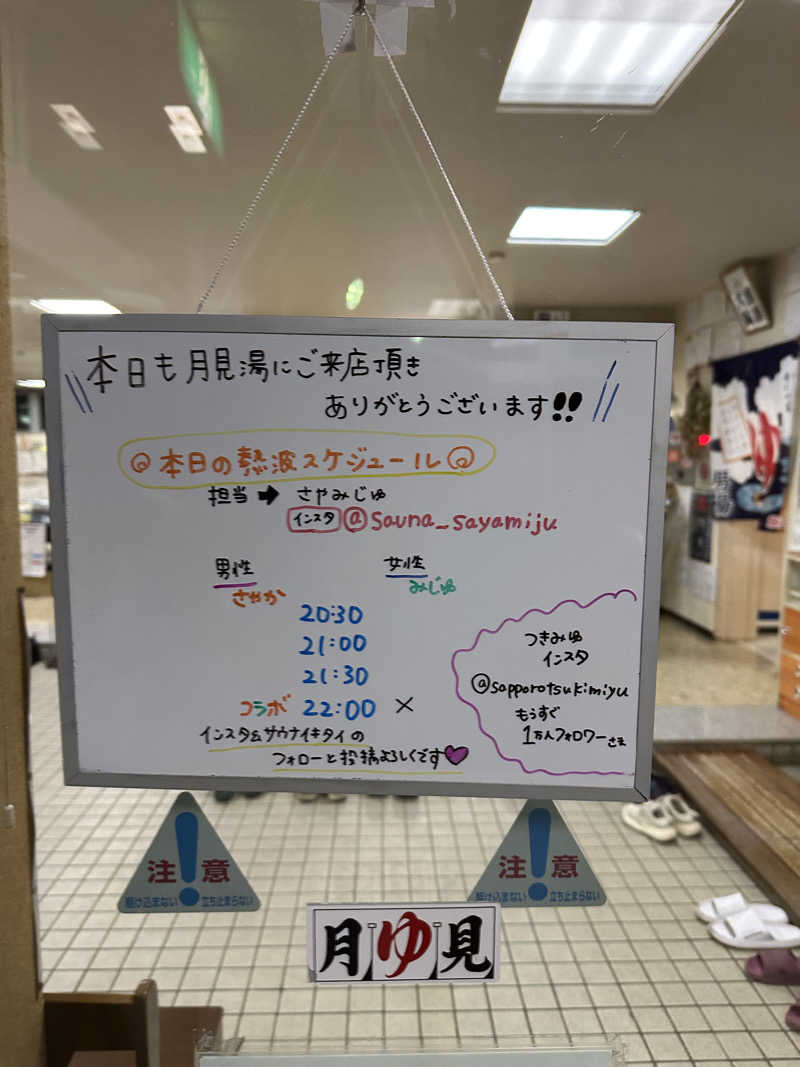 本日も月見湯にご来店頂き
ありがとうございます!!
本日の熱波スケジュール
担当➡ さやみじゅ
インスタ @sauna_sayamiju
男性 女性
さやか みじゅ
20:30
21:00
21:30
コラボ 22:00 ×
インスタ&サウナイキタイの
フォローと投稿よろしくです♥
つきみゆ
インスタ
@sapporotsukimiyu
もうすぐ
1万人フォロワーさま
注!意
駆け込まない 立ち止まらない
注!意
駆け込まない 立ち止まらない
月ゆ見